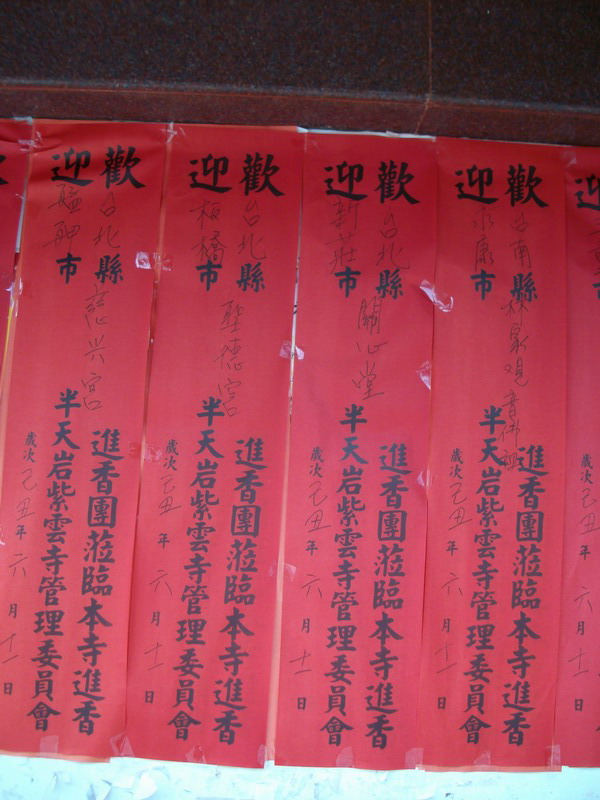 歡迎
台南縣
永康市
林家觀音佛祖
進香團蒞臨本寺進香
半天岩紫雲寺管理委員會
歲次己丑年六月十一日
歡迎
台北縣
新莊市
關心堂
進香團蒞臨本寺進香
半天岩紫雲寺管理委員會
歲次己丑年六月十一日
歡迎
台北縣
板橋市
聖德宮
進香團蒞臨本寺進香
半天岩紫雲寺管理委員會
歲次己丑年六月十一日
歡迎
台北縣
艋舺市
慈兴宮
進香團蒞臨本寺進香
半天岩紫雲寺管理委員會
歲次己丑年六月十一日